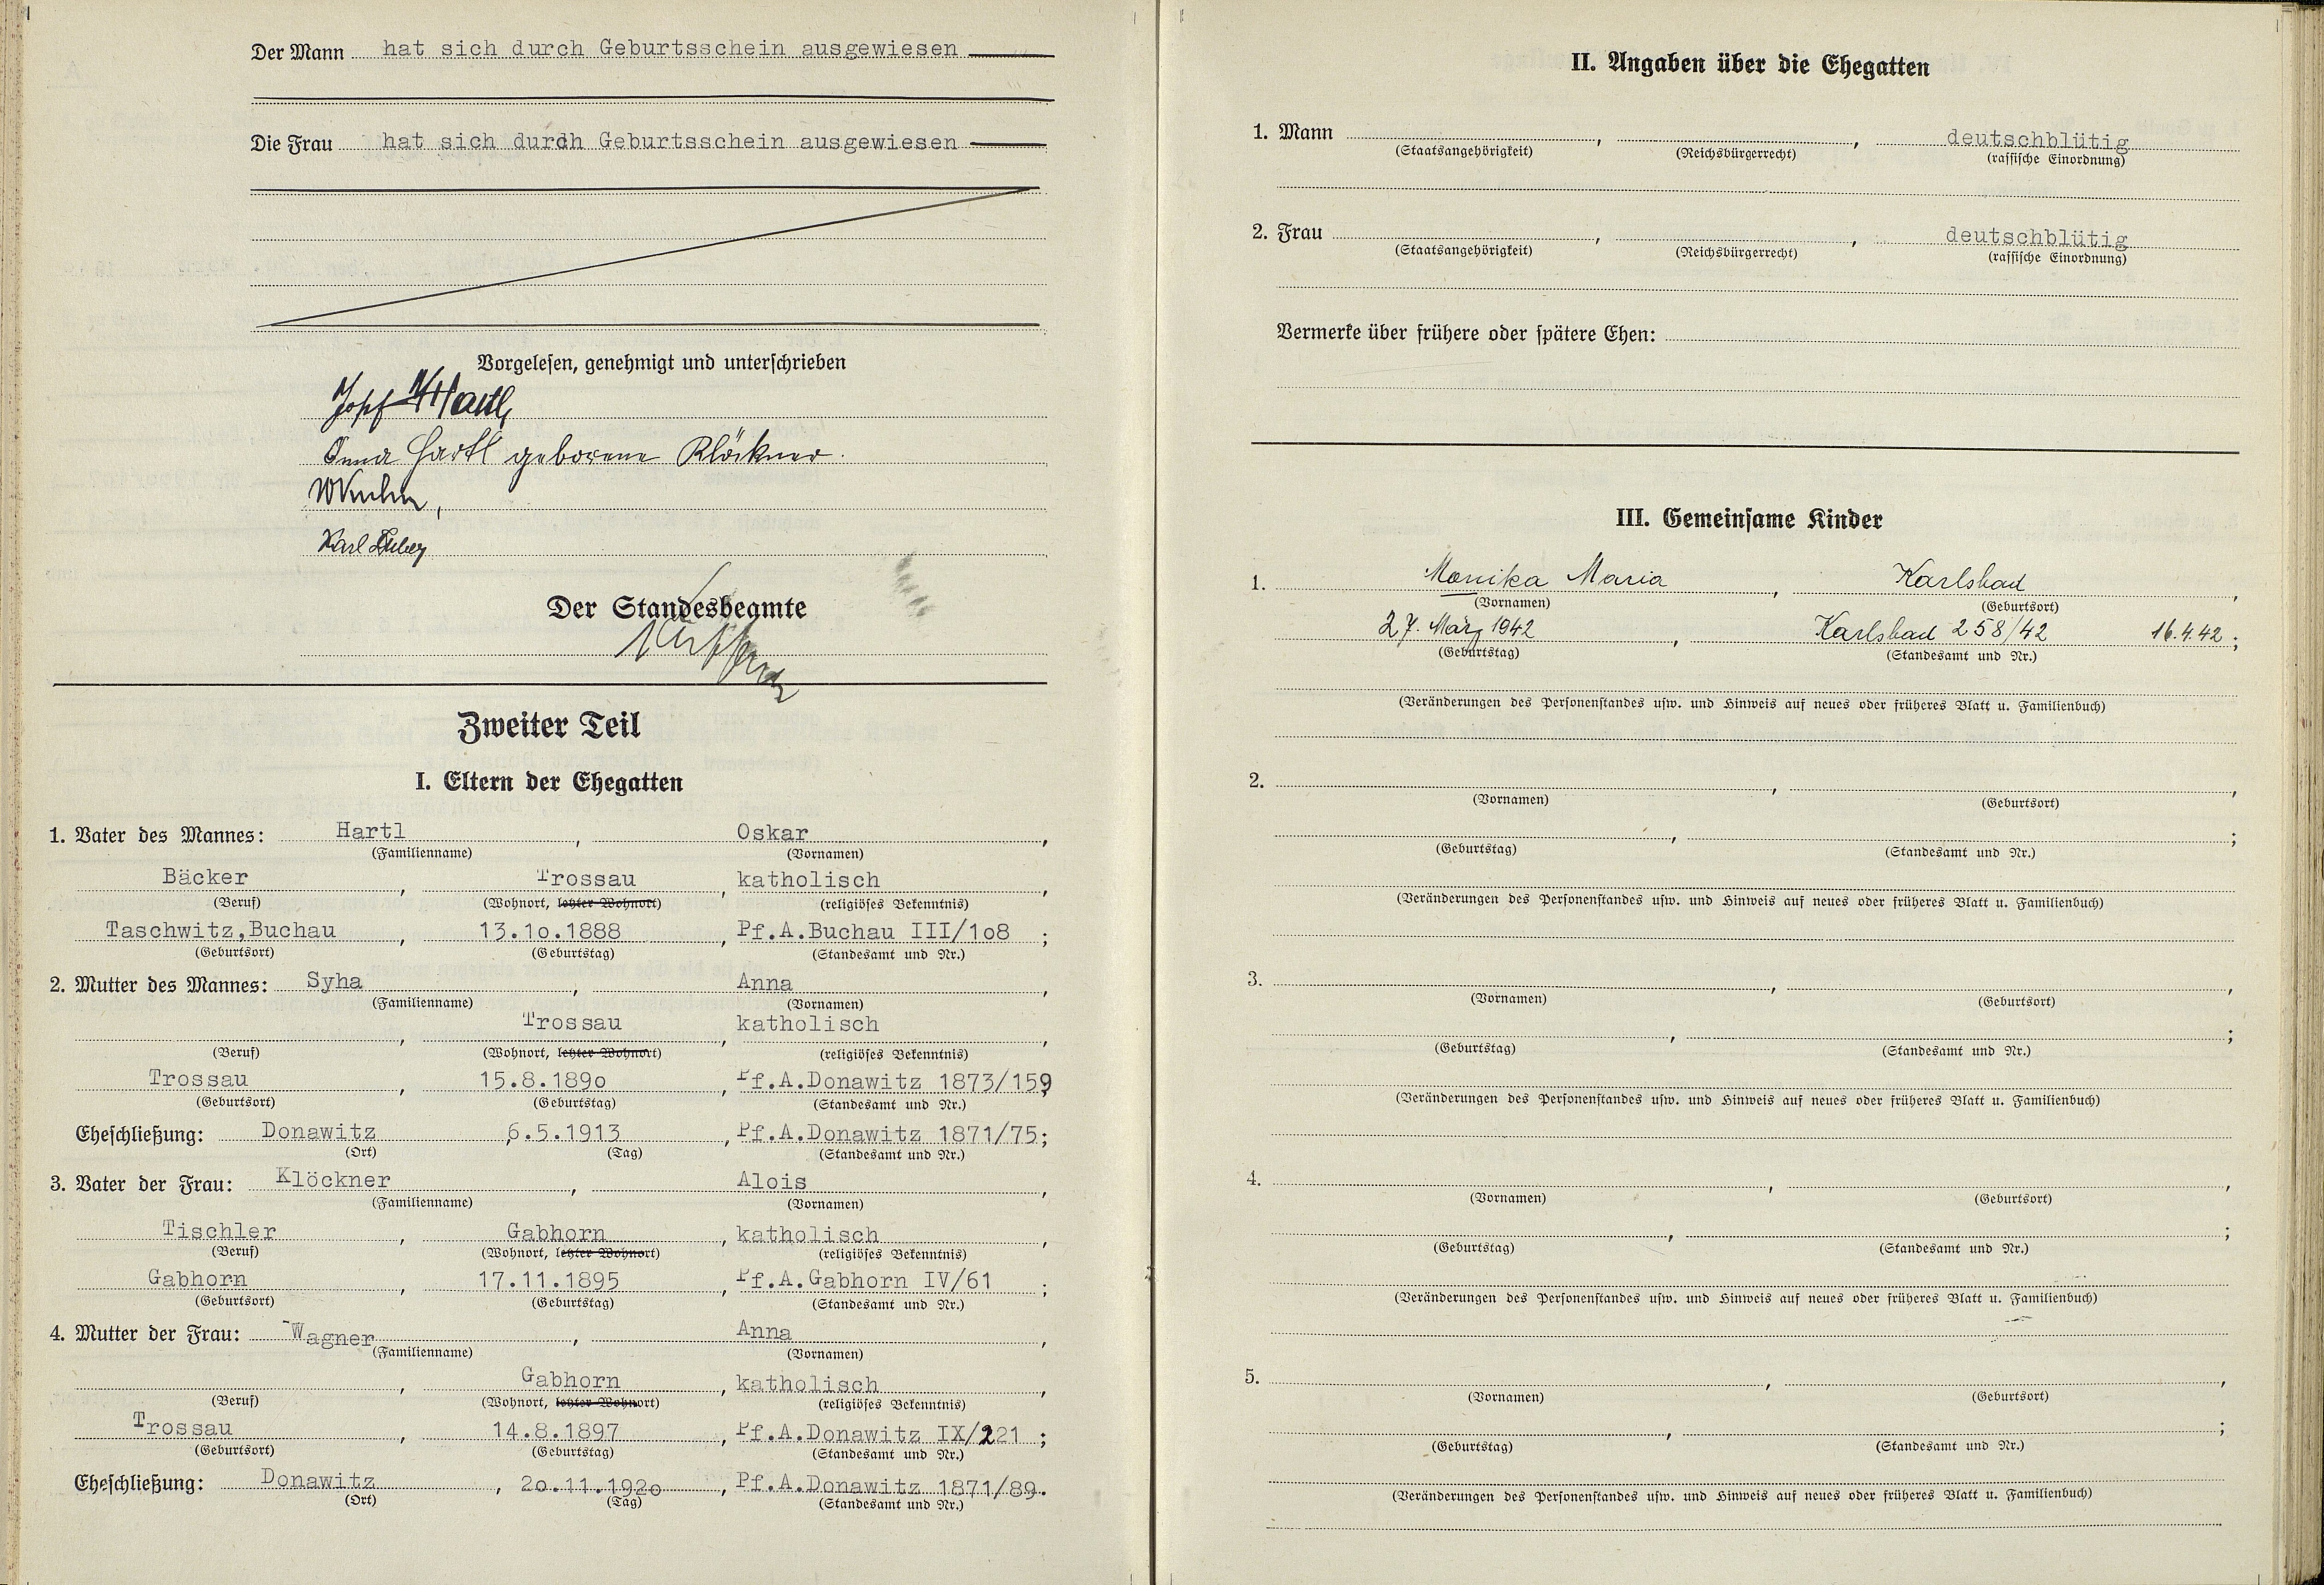 Der Mann hat sich durch Geburtsschein ausgewiesen
Die Frau hat sich durch Geburtsschein ausgewiesen
Vorgelesen, genehmigt und unterschrieben
Hartl
Anna Hartl geborene Klöckner.
Karl
Der Standesbeamte
Zweiter Teil
I. Eltern der Ehegatten
1. Vater des Mannes: Hartl, Oskar,
(Familienname) (Vornamen)
Bäcker, Trossau, katholisch,
(Beruf) (Wohnort, letzter Wohnort) (religiöses Bekenntnis)
Taschwitz,Buchau, 13.1o.1888, Pf.A.Buchau III/1o8;
(Geburtsort) (Geburtstag) (Standesamt und Nr.)
2. Mutter des Mannes: Syha, Anna,
(Familienname) (Vornamen)
, Trossau, katholisch,
(Beruf) (Wohnort, letzter Wohnort) (religiöses Bekenntnis)
Trossau, 15.8.189o, Pf.A.Donawitz 1873/159;
(Geburtsort) (Geburtstag) (Standesamt und Nr.)
Eheschließung: Donawitz, 6.5.1913, Pf.A.Donawitz 1871/75;
(Ort) (Tag) (Standesamt und Nr.)
3. Vater der Frau: Klöckner, Alois,
(Familienname) (Vornamen)
Tischler, Gabhorn, katholisch,
(Beruf) (Wohnort, letzter Wohnort) (religiöses Bekenntnis)
Gabhorn, 17.11.1895, Pf.A.Gabhorn IV/61;
(Geburtsort) (Geburtstag) (Standesamt und Nr.)
4. Mutter der Frau: Wagner, Anna,
(Familienname) (Vornamen)
, Gabhorn, katholisch,
(Beruf) (Wohnort, letzter Wohnort) (religiöses Bekenntnis)
Trossau, 14.8.1897, Pf.A.Donawitz IX/221;
(Geburtsort) (Geburtstag) (Standesamt und Nr.)
Eheschließung: Donawitz, 2o.11.192o, Pf.A.Donawitz 1871/89.
(Ort) (Tag) (Standesamt und Nr.)
II. Angaben über die Ehegatten
1. Mann , , deutschblütig
(Staatsangehörigkeit) (Reichsbürgerrecht) (rassische Einordnung)
2. Frau , , deutschblütig
(Staatsangehörigkeit) (Reichsbürgerrecht) (rassische Einordnung)
Vermerke über frühere oder spätere Ehen:
III. Gemeinsame Kinder
1. Monika Maria, Karlsbad,
(Vornamen) (Geburtsort)
27. März 1942, Karlsbad 258/42 16.4.42;
(Geburtstag) (Standesamt und Nr.)
(Veränderungen des Personenstandes usw. und Hinweis auf neues oder früheres Blatt u. Familienbuch)
2. , ,
(Vornamen) (Geburtsort)
, ;
(Geburtstag) (Standesamt und Nr.)
(Veränderungen des Personenstandes usw. und Hinweis auf neues oder früheres Blatt u. Familienbuch)
3. , ,
(Vornamen) (Geburtsort)
, ;
(Geburtstag) (Standesamt und Nr.)
(Veränderungen des Personenstandes usw. und Hinweis auf neues oder früheres Blatt u. Familienbuch)
4. , ,
(Vornamen) (Geburtsort)
, ;
(Geburtstag) (Standesamt und Nr.)
(Veränderungen des Personenstandes usw. und Hinweis auf neues oder früheres Blatt u. Familienbuch)
5. , ,
(Vornamen) (Geburtsort)
, ;
(Geburtstag) (Standesamt und Nr.)
(Veränderungen des Personenstandes usw. und Hinweis auf neues oder früheres Blatt u. Familienbuch)